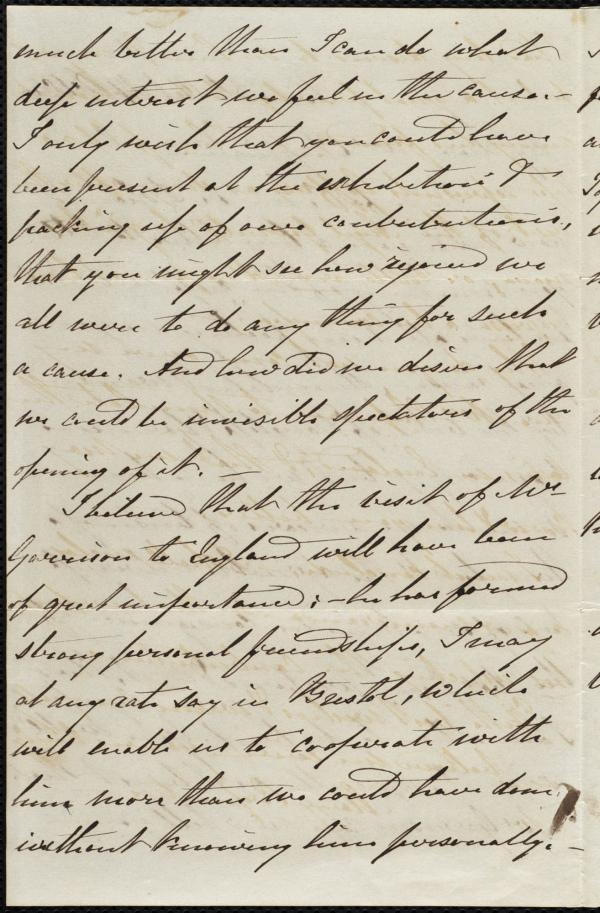 much better than I can do what
deep interest we feel in the cause. –
I only wish that you could have
been present at the exhibition &
packing up of our contributions,
that you might see how rejoiced we
all were to do any thing for such
a cause. And how did we desire that
we could be invisible spectators of the
opening of it. –
I believe that the visit of Mr
Garrison to England will have been
of great importance; – he has formed
strong personal friendships, I may
at any rate say in Bristol, which
will enable us to cooperate with
him more than we could have done
without knowing him personally. –